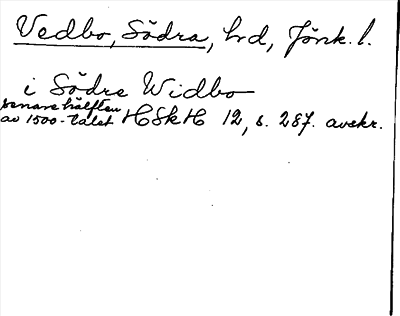 Vedbo, Södra, hrd, Jönk. l.
i Södre Widbo
senare hälften
av 1500-talet HSkH 12, s. 287. avskr.